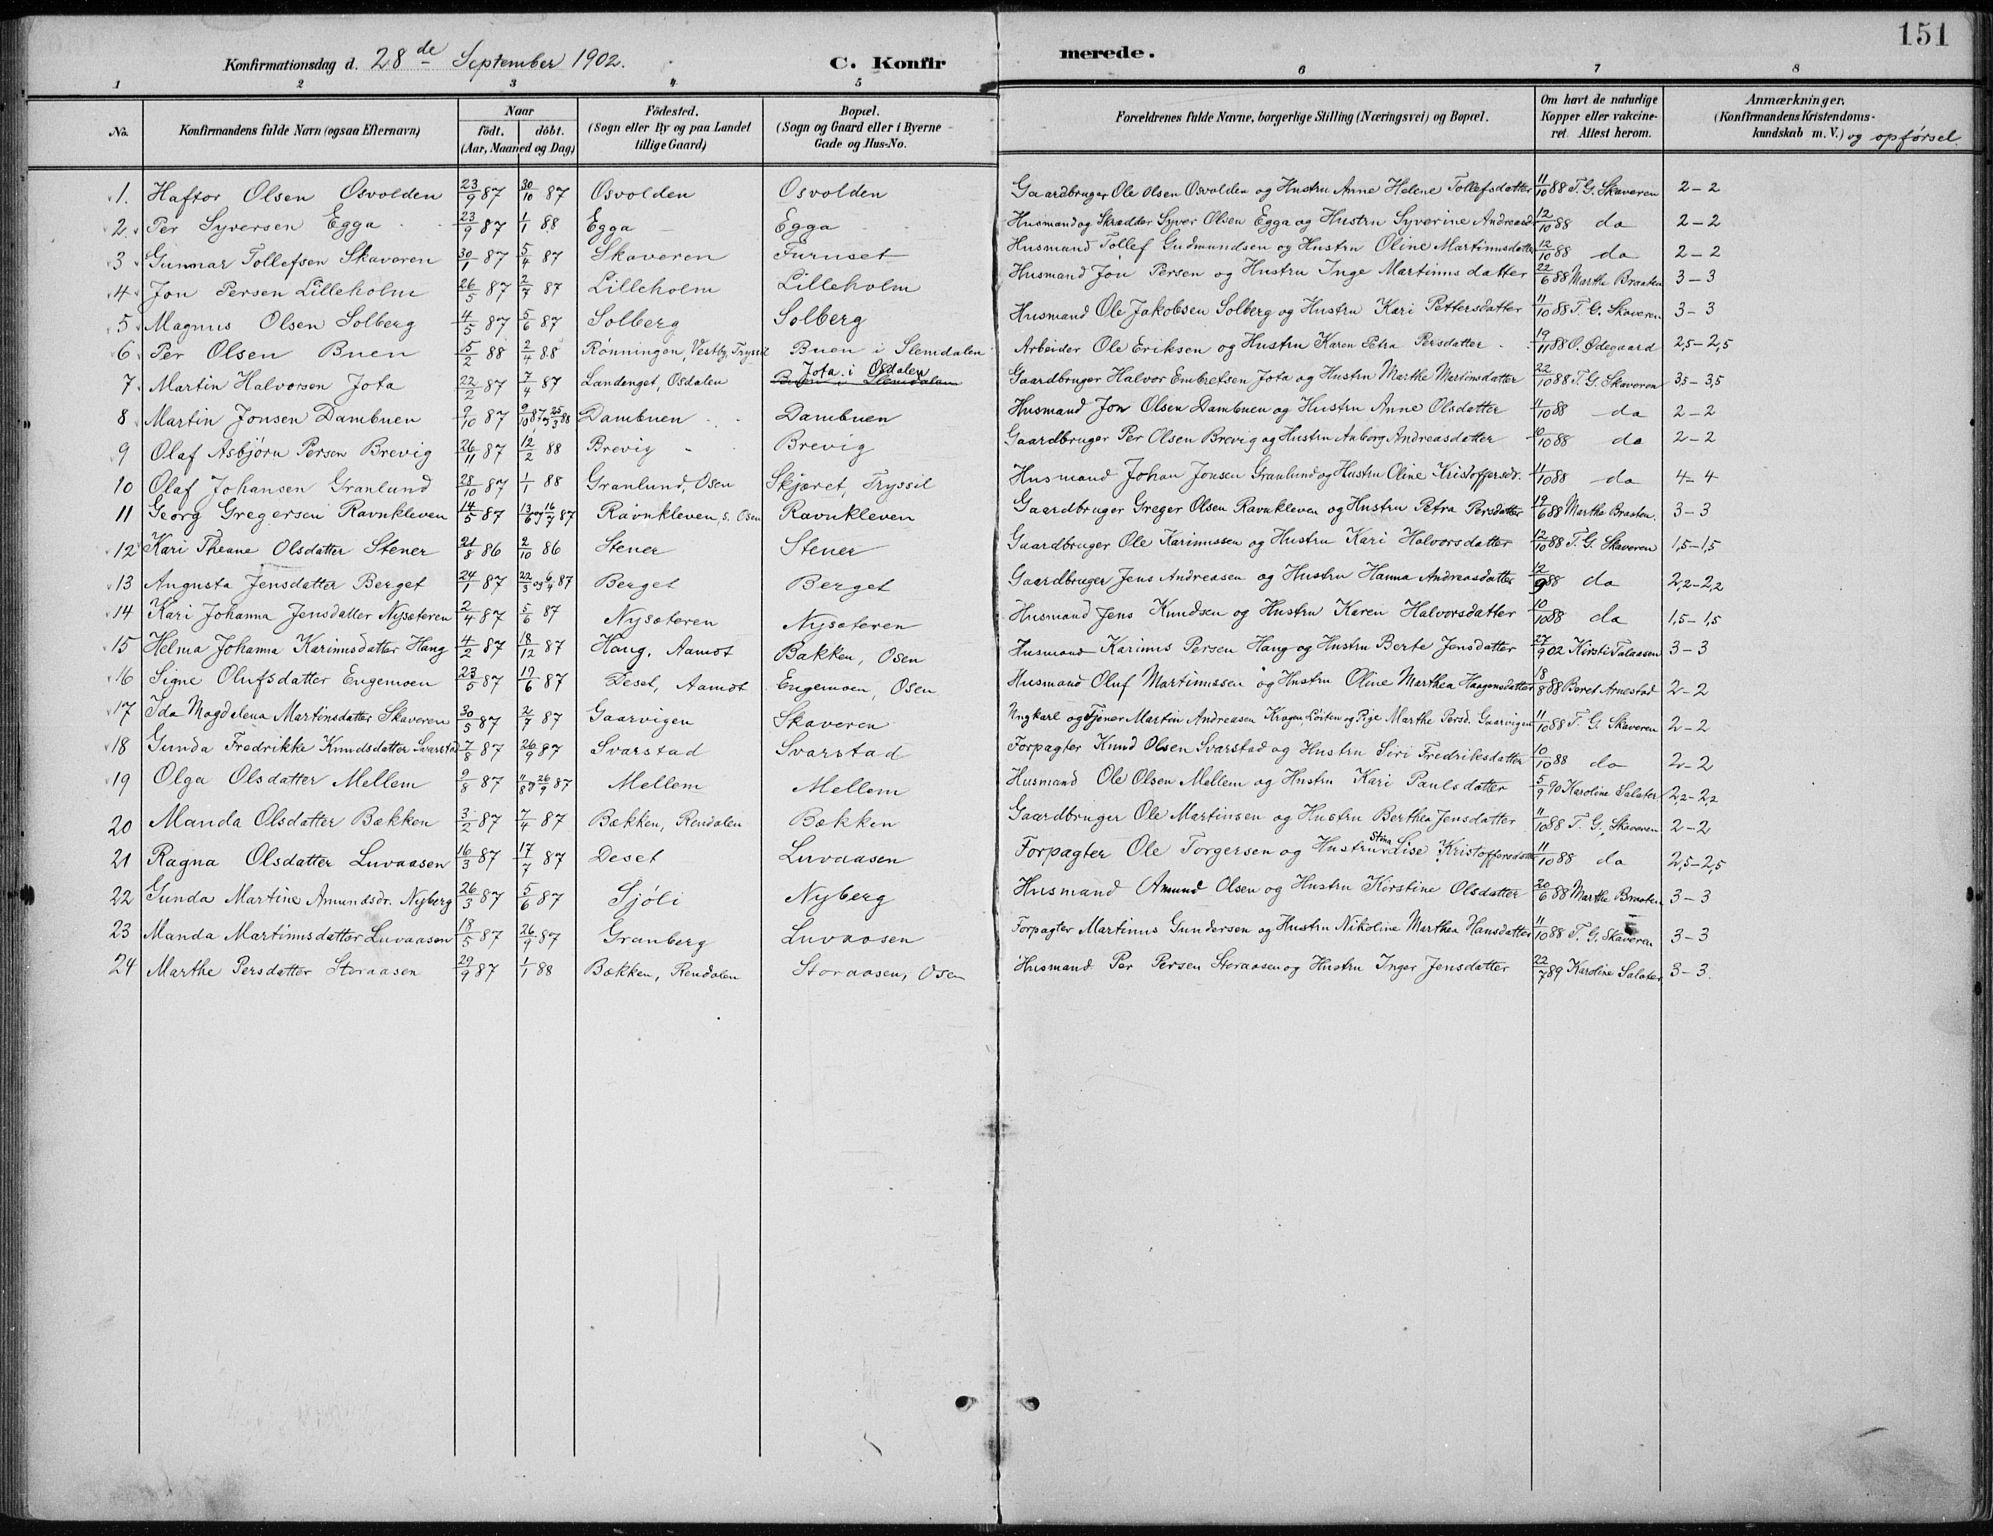 151
Konfirmationsdag d. 28de September 1902. C. Konfirmerede.
1 2 3 4 5 6 7 8
No. Konfirmandens fulde Navn (ogsaa Efternavn) Naar födt. döbt. (Aar, Maaned og Dag) Födested. (Sogn eller By og paa Landet tillige Gaard) Bopæl. (Sogn og Gaard eller i Byerne Gade og Hus-No. Forældrenes fulde Navne, borgerlige Stilling (Næringsvei) og Bopæl. Om havt de naturlige Kopper eller vakcineret. Attest herom. Anmærkninger. (Konfirmandens Kristendomskundskab m. V.) og opførsel.
1. Haftor Olsen Osvolden 23/9 87 30/10 87 Osvolden Osvolden Gaardbruger Ole Olsen Osvolden og Hustru Anne Helene Tollefsdatter 11/10 88 T. G. Skaveren 2-2
2 Per Syversen Egga 23/9 87 1/1 88 Egga Egga Husmand og Skrædder Syver Olsen Egga og Hustru Syverine Andreasd 12/10 88 do 2-2
3 Gunnar Tollefsen Skaveren 30/1 87 5/4 87 Skaveren Furuset Husmand Tollef Gudmundsen og Hustru Oline Martinusdatter 12/10 88 do 2-2
4 Jon Persen Lilleholm 26/5 87 2/7 87 Lilleholm Lilleholm Husmand Jon Persen og Hustru Inge Martinusdatter 22/6 88 Marthe Braaten 3-3
5 Magnus Olsen Solberg 4/5 87 5/6 87 Solberg Solberg Husmand Ole Jakobsen Solberg og Hustru Kari Pettersdatter 11/10 88 T. G. Skaveren 3-3
6 Per Olsen Buen 5/2 88 2/4 88 Rønningen, Vestby, Trysil Buen i Slemdalen Arbeider Ole Eriksen og Hustru Karen Petra Persdatter 19/11 88 O. Ødegaard 2,5-2,5
7 Martin Halvorsen Jota 22/2 87 7/4 87 Landenget, Osdalen Jota i Osdalen Buen i Slemdalen Gaardbruger Halvor Embretsen Jota og Hustru Marthe Martinsdatter 22/10 88 T. G. Skaveren 3,5-3,5
8 Martin Jonsen Dambuen 9/10 87 9/10 87 og 25/3 88 Dambuen Dambuen Husmand Jon Olsen Dambuen og Hustru Anne Olsdatter 11/10 88 do 2-2
9 Olaf Asbjörn Persen Brevig 26/11 87 12/2 88 Brevig Brevig Gaardbruger Per Olsen Brevig og Hustru Aaborg Andreasdatter 10/10 88 do 2-2
10 Olaf Johansen Granlund 28/10 87 1/1 88 Granlund, Osen Skjæret, Tryssil Husmand Johan Jonsen Granlund og Hustru Oline Kristoffersdr. 11/10 88 do 4-4
11 Georg Gregersen Ravnkleven 14/5 87 13/6 og 16/7 87 Ravnkleven, s. Osen Ravnkleven Gaardbruger Greger Olsen Ravnkleven og Hustru Petra Persdatter 19/6 88 Marthe Braaten. 3-3
12 Kari Theane Olsdatter Stener 21/8 86 2/10 86 Stener Stener Gaardbruger Ole Karinussen og Hustru Kari Halvorsdatter 12/10 88 T. G. Skaveren 1,5-1,5
13 Augusta Jensdatter Berget 24/1 87 22/3 og 6/4 87 Berget Berget Gaardbruger Jens Andreasen og Hustru Hanna Andreasdatter 12/9 88 do 2,2-2,2
14 Kari Johanna Jensdatter Nysæteren 2/4 87 5/6 87 Nysæteren Nysæteren Husmand Jens Knudsen og Hustru Karen Halvorsdatter 10/10 88 do 1,5-1,5
15 Helma Johanna Karinusdatter Haug 4/2 87 18/12 87 Haug, Aamot Bakken, Osen Husmand Karinus Persen Haug og Hustru Berte Jensdatter 27/9 02 Kirsti Talaasen 3-3
16 Signe Olufsdatter Engemoen 23/5 87 19/6 87 Deset, Aamot Engemoen, Osen Husmand Oluf Martinussen og Hustru Oline Marthea Haagensdatter 18/8 88 Beret Arnestad 2-2
17 Ida Magdalena Martinsdatter Skaveren 30/5 87 2/7 87 Gaarvigen Skaveren Ungkarl og Tjener Martin Andreasen Kragen Löiten og Pige Marthe Persd. Gaarvigen 11/10 88 T. G. Skaveren 2-2
18 Gunda Fredrikke Knudsdatter Svarstad 7/8 87 26/9 87 Svarstad Svarstad Forpagter Knud Olsen Svarstad og Hustru Siri Fredriksdatter 10/10 88 do 2-2
19 Olga Olsdatter Mellem 9/8 87 11/8 og 26/9 87 Mellem Mellem Husmand Ole Olsen Mellem og Hustru Kari Paulsdatter 5/9 90 Karoline Sæleter 2,2-2,2
20 Manda Olsdatter Bækken 3/2 87 7/4 87 Bækken, Rendalen Bækken Gaardbruger Ole Martinsen og Hustru Berthea Jensdatter 11/10 88 T. G. Skaveren 2-2
21 Ragna Olsdatter Luvaasen 16/3 87 17/7 87 Deset Luvaasen Forpagter Ole Torgersen og Hustru Stina Lise Kristoffersdatter 11/10 88 do 2,5-2,5
22 Gunda Martine Amundsdr. Nyberg 26/3 87 5/6 87 Sjöli Nyberg Husmand Amund Olsen og Hustru Kirstine Olsdatter 20/6 88 Marthe Braaten 3-3
23 Manda Martinusdatter Luvaasen 18/5 87 26/9 87 Granberg Luvaasen Forpagter Martinus Gundersen og Hustru Nikoline Marthea Hansdatter 11/10 88 T. G. Skaveren 3-3
24 Marthe Persdatter Storaasen 29/9 87 1/1 88 Bækken, Rendalen Storaasen, Osen Husmand Per Persen Storaasen og Hustru Inger Jensdatter 22/7 89 Karoline Sæleter 3-3.